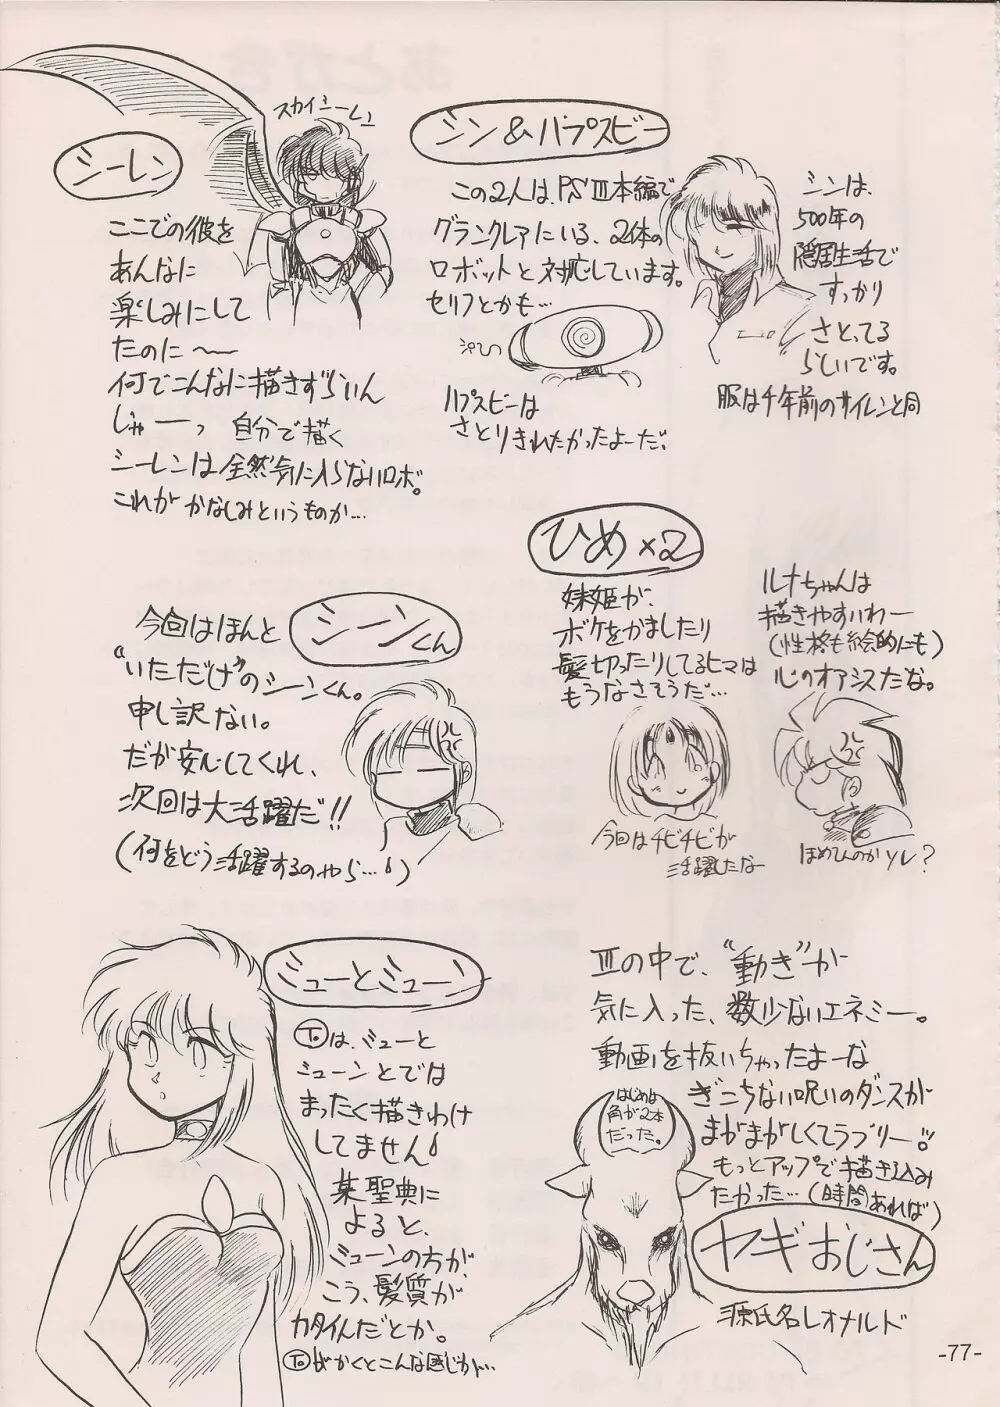 シーレン
スカイミーレユ
ここでの彼を
あんなに
楽しみにして
たのに〜
何でこんなに描きずらいん
じゃーっ 自分で描く
シーレンは全然気に入らないロボ。
これが かなしみというものか…
シン&ハプスビー
この2人は、PSⅢ本編で
グランクレアにいる、2体の
ロボットと対応しています。
セリフとかも…
ハプスビーは
さとりきれたかったよーだ。
シンは、
500年の
隠居生活で
すっかり
さとってる
らしいです。
服は千年前のサイレンと同
ひめ×2
妹姫が、
ボケをかましたり
髪切ったりしてるヒマは
もうなさそうだ…
今回はチビチビが
活躍したなー
ルナちゃんは
描きやすいわー
(性格も絵的にも)
心のオアシスだな。
ほめてんのかソレ?
今回はほんと シーンくん
"いただけ"のシーンくん。
申し訳ない。
だが安心してくれ、
次回は大活躍だ!!
(何をどう活躍するのやら…)
ミューとミューン
Toは、ミューと
ミューンとでは
まったく描きわけ
してません
某聖典に
よると、
ミューンの方が、
こう、髪質が
カタイんだとか。
Toがかくとこんな感じか…
Ⅲの中で、"動き"が
気に入った、数少ないエネミー。
動画を抜いちゃったよーな
ぎこちない呪いのダンスが
まがまがしくてラブリー!!
もっとアップで描き込み
たかった…(時間あれば)
はじめは
角が2本
だった。
ヤギおじさん
源氏名レオナルド
-77-